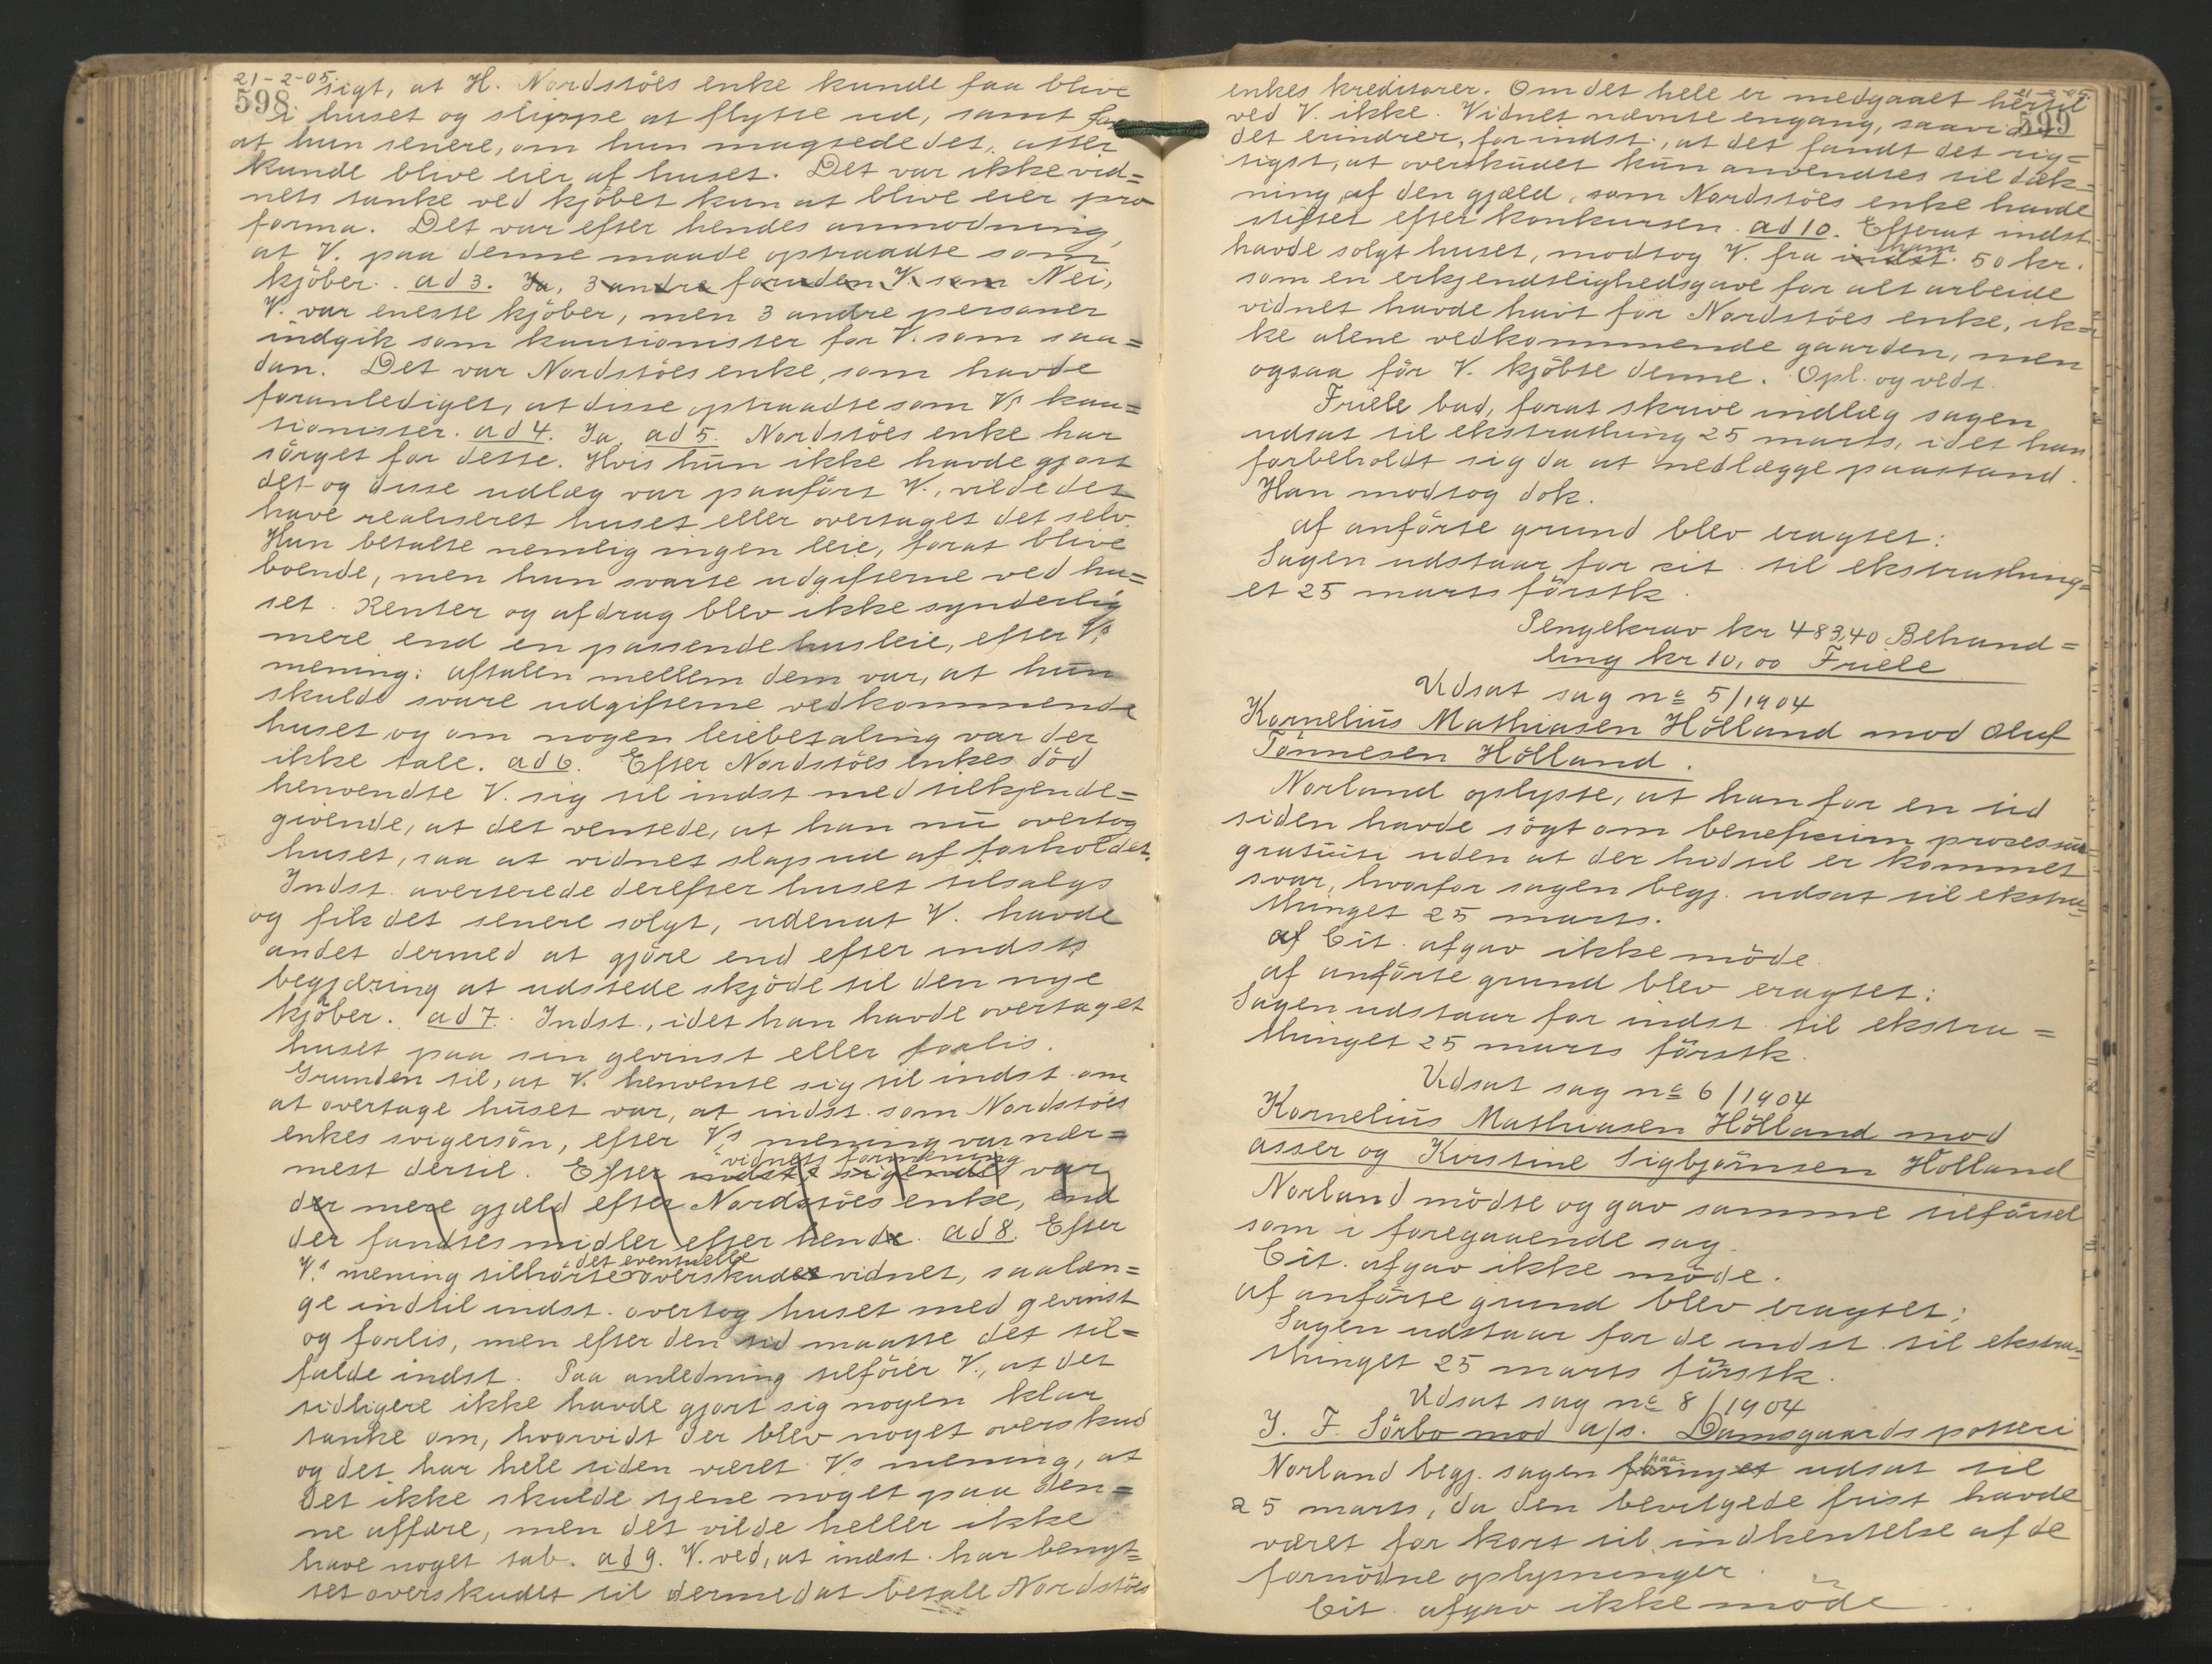 21-2-05.
598.
sigt, at H. Nordstöes enke kunde faa blive
i huset og slippe at flytte ud, samt for
at hun senere, om hun magtede det, atter
kunde blive eier af huset. Det var ikke vid=
nets tanke ved kjöbet kun at blive eier pro
forma. Det var efter hendes anmodning,
at V. paa denne maade optraadte som
kjöber. ad 3. Ja, 3 andre foruden V. som Nei,
V. var eneste kjöber, men 3 andre personer
indgik som kautionister for V. som saa=
dan. Det var Nordstöes enke, som havde
foranlediget, at disse optraadte som V.s kau=
tionister. ad 4. Ja. ad 5. Nordstöes enke har
sörget for dette. Hvis hun ikke havde gjort
det og disse udlæg var paafört V., vilde det
have realiseret huset eller overtaget det selv.
Hun betalte nemlig ingen leie, forat blive
boende, men hun svarte udgifterne ved hu=
set. Renter og afdrag blev ikke synderlig
mere end en passende husleie, efter V.s
mening; aftalen mellem dem var, at hun
skulde svare udgifterne vedkommende
huset og om nogen leiebetaling var der
ikke tale. ad 6. Efter Nordstöes enkes död
henvendte V. sig til indst. med tilkjende=
givende, at det ventede, at han nu overtog
huset, saa at vidnet slap ud af forholdet.
Indst. averterede derefter huset tilsalgs
og fik det senere solgt, udenat V. havde
andet dermed at gjöre end efter indsts
begjæring at udstede skjöde til den nye
kjöber. ad 7. Indst., idet han havde overtaget
huset paa sin gevinst eller forlis.
Grunden til, at V. henvente sig til indst. om
at overtage huset var, at indst. som Nordstöes
enkes svigersön, efter V.s mening var nær=
mest dertil. Efter indst.s sigende vidnets formening var
der mere gjæld efter Nordstöes enke, end
der fandtes midler efter hende. ad 8. Efter
V.s mening tilhörte det eventuelle overskudet vidnet, saalæn=
ge indtil indst. overtog huset med gevinst
og forlis, men efter den tid maatte det til=
falde indst. Paa anledning tilföier V., at det
tidligere ikke havde gjort sig nogen klar
tanke om, hvorvidt der blev noget overskud
og det har hele tiden været V.s mening, at
det ikke skulde tjene noget paa den=
ne affære, men det vilde heller ikke
have noget tab. ad 9. V. ved, at indst. har benyt=
tet overskudet til dermed at betale Nordstöes
21-2-05.
599
enkes kreditorer. Om det hele er medgaaet hertil
ved V. ikke. Vidnet nævnte engang, saavidt
det erindrer, for indst., at det fandt det rig=
tigst, at overskudet kun anvendtes til dæk=
ning af den gjæld, som Nordstöes enke havde
stiftet efter konkursen. ad 10. Efterat indst.
havde solgt huset, modtog V. fra indst. ham 50 kr.
som en erkjendtlighedsgave for alt arbeide
vidnet havde havt for Nordstöes enke, ik=
ke alene vedkommende gaarden, men
ogsaa för V. kjöbte denne. Opl. og vedt.
Friele bad, forat skrive indlæg sagen
udsat til ekstrathing 25 marts, idet han
forbeholdt sig da at nedlægge paastand.
Han modtog dok.
af anförte grund blev eragtet:
Sagen udstaar for cit. til ekstrathing=
et 25 marts förstk.
Pengekrav kr 483,40 Behand=
ling kr 10,00 Friele
Udsat sag no 5/1904
Kornelius Mathiasen Hölland mod Oluf
Tönnesen Hölland.
Norland oplyste, at han for en tid
siden havde sögt om beneficium processus
gratuiti uden at der hidtil er kommet
svar, hvorfor sagen begj. udsat til ekstra=
thinget 25 marts.
af Cit. afgav ikke möde.
af anförte grund blev eragtet:
Sagen udstaar for indst. til ekstra=
thinget 25 marts förstk.
Udsat sag no 6/1904
Kornelius Mathiasen Hölland mod
Asser og Kirstine Sigbjörnsen Hölland
Norland mödte og gav samme tilförsel
som i foregaaende sag.
Cit. afgav ikke möde.
af anförte grund blev eragtet:
Sagen udstaar for de indst. til ekstra=
thinget 25 marts förstk.
Udsat sag no 8/1904
J. F. Sörbo mod A/S. Damsgaards potteri
Norland begj. sagen paa udsat til
25 marts, da den bevilgede frist havde
været for kort til indhentelse af de
fornödne oplysninger.
Cit. afgav ikke möde